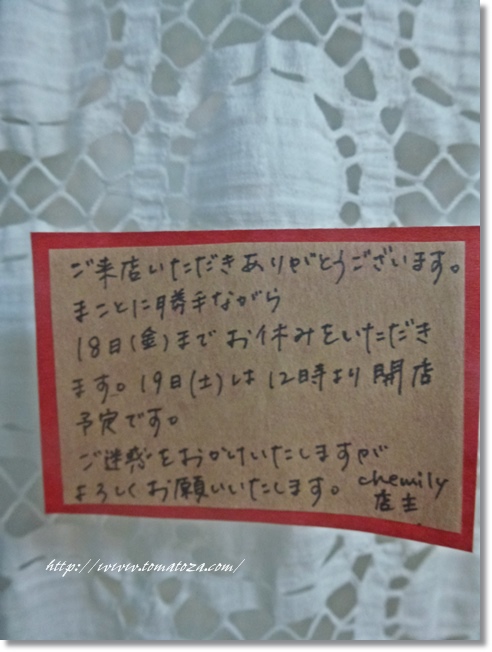 ご来店いただきありがとうございます。
まことに勝手ながら
18日(金)までお休みをいただき
ます。19日(土)は12時より開店
予定です。
ご迷惑をおかけいたしますが
よろしくお願いいたします。chemily
店主
http://www.tomatoza.com/